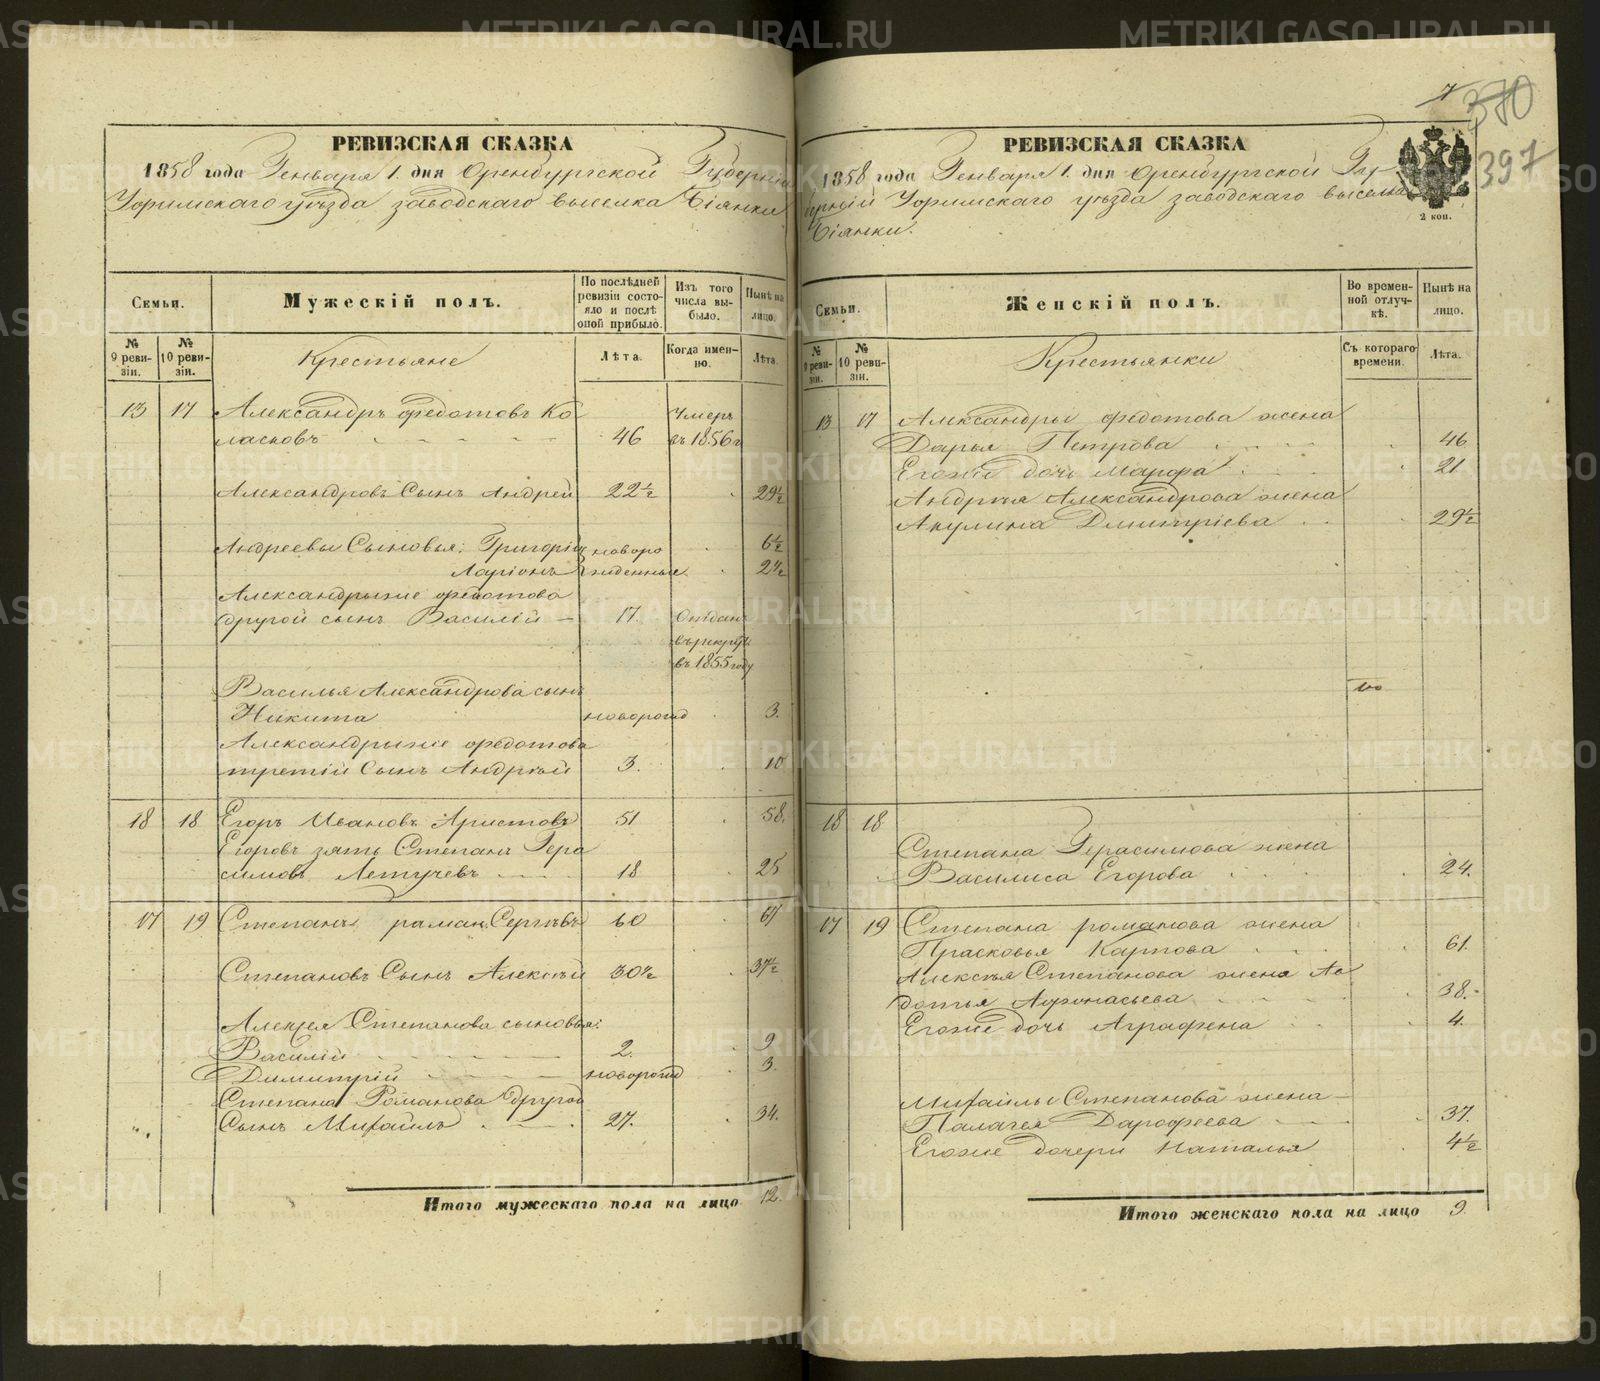 РЕВИЗСКАЯ СКАЗКА
1858 года Генваря 1. дня Оренбургской Губерніи
Уфимскаго уѣзда заводскаго выселка Біянки
Семьи.
Мужескій полъ.
По послѣдней ревизіи состояло и послѣ оной прибыло.
Изъ того числа выбыло.
Нынѣ на лицо.
№ 9 ревизіи.
№ 10 ревизіи.
Крестьяне
Лѣта.
Когда именно.
Лѣта.
13 17 Александръ Федотовъ Ко Умеръ
ласковъ 46 въ 1856 г
Александровъ Сынъ Андрей 22½ 29½
Андреевы Сыновья: Григорій новоро 6½
Ларіонъ жденные. 2½
Александрыже Федотова
другой сынъ Василій 17. Отданъ
въ рекруты
въ 1855 году
Василья Александрова сынъ
Никита новорожд 3.
Александрыже Федотова
третій Сынъ Андрѣй 3. 10
18 18 Егоръ Ивановъ Аристовъ 51 58.
Егоровъ зять Степанъ Гера
симовъ Летучевъ 18 25
17 19 Степанъ раман. Сергѣевъ 60 67
Степановъ Сынъ Алексѣй 30½ 37½
Алексея Степанова сыновья:
Василій 2. 9
Димитрій новорожд 3.
Степана Романова другой
Сынъ Михаилъ 27. 34.
Итого мужескаго пола на лицо 12.
7
370
397
РЕВИЗСКАЯ СКАЗКА
1858 года Генваря 1. дня Оренбургской Гу
берніи Уфимскаго уѣзда заводскаго выселка
Біянки.
2 коп.
Семьи.
Женскій полъ.
Во временной отлучкѣ.
Нынѣ на лицо.
№ 9 ревизіи.
№ 10 ревизіи.
Крестьянки
Съ котораго времени.
Лѣта.
13 17 Александры Федотова жена
Дарья Петрова 46
Егоже дочь Марфа 21
Андрѣя Александрова жена
Акулина Димитріева 29½
18 18
Степана Герасимова жена
Василиса Егорова 24.
17 19 Степана романова жена
Прасковья Карпова 61.
Алексѣя Степанова жена Ав
дотья Афонасьева 38.
Егоже дочь Аграфена 4.
Михаилы Степанова жена
Палагея Дарофеева 37.
Егоже дочери Наталья 4½
Итого женскаго пола на лицо 9.
METRIKI.GASO-URAL.RU